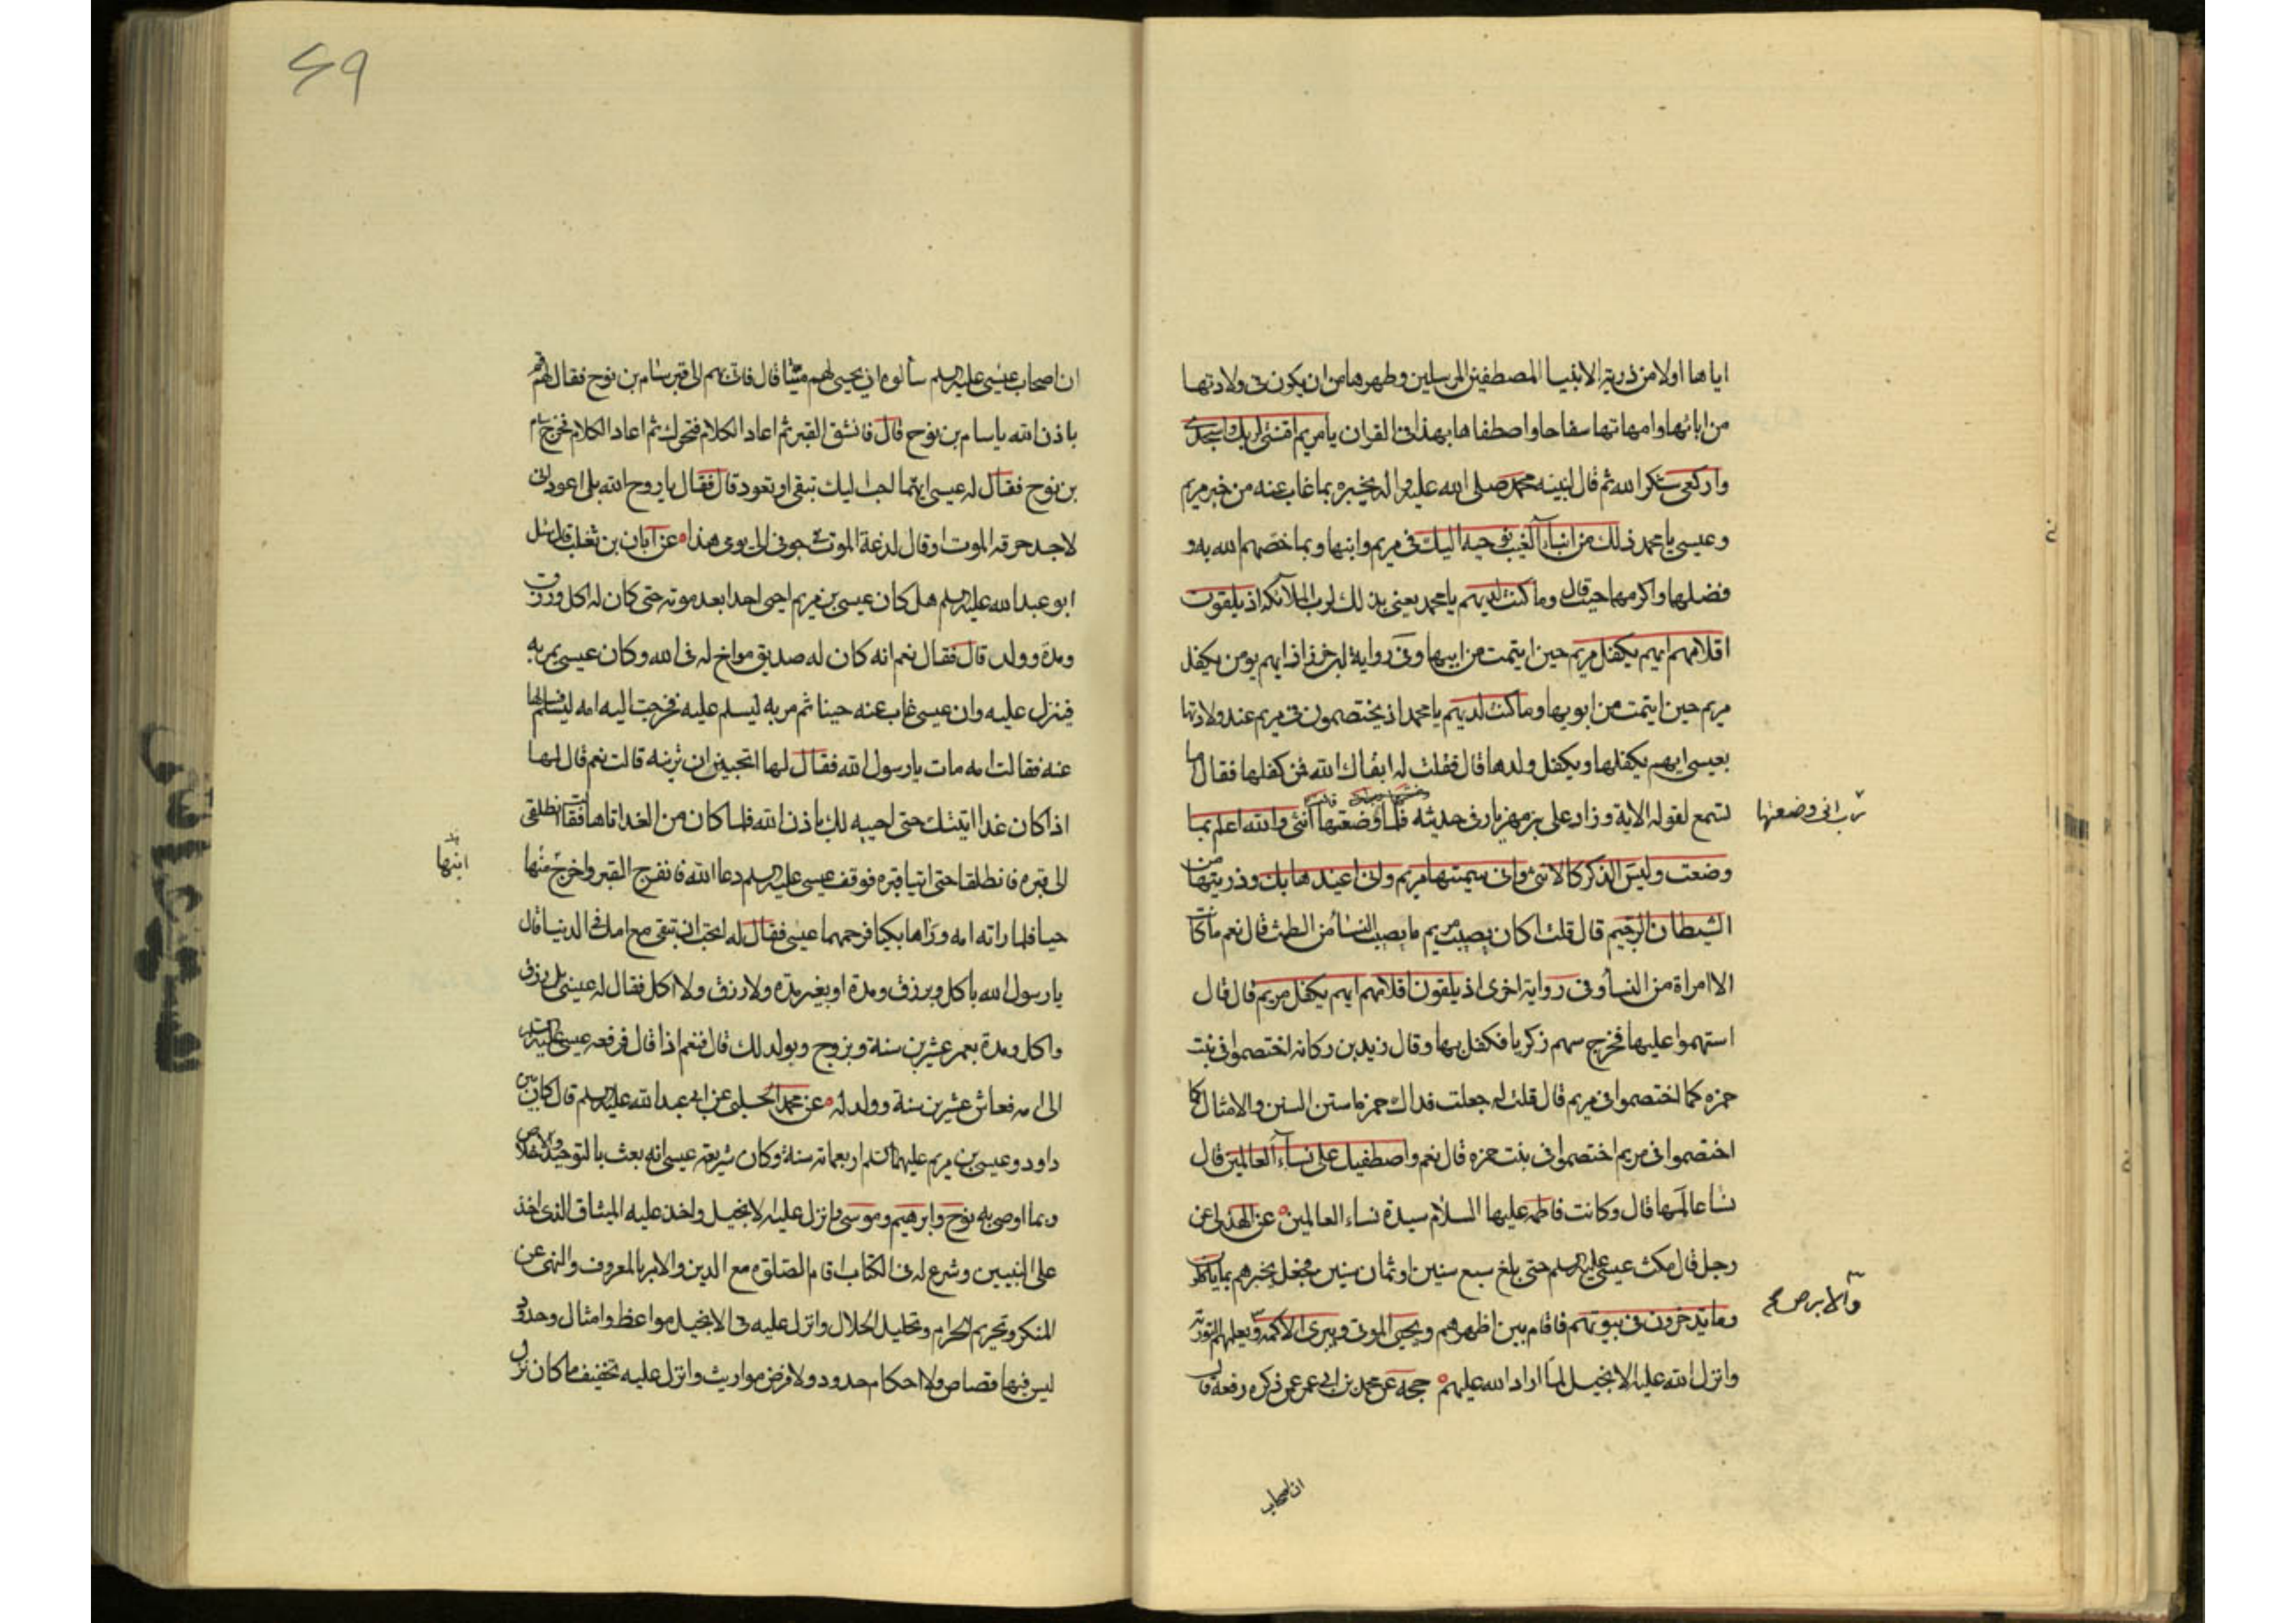 اياها اولا من ذرية الانبيا المصطفين المرسلين وطهرها من ان يكون فى ولادتها
من ابائها وامهاتها سفاحا واصطفاها بهذا فى القران يا مريم اقنتى لربك واسجدى
واركعى شكرا لله ثم قال لنبيه محمد صلى الله عليه واله يخبره بما غاب عنه من خبر مريم
وعيسى يا محمد ذلك من انباء الغيب نوحيه اليك فى مريم وابنها وبما خصهم الله به و
فضلها واكرمها حيث قال وما كنت لديهم يا محمد يعنى بذلك لرب الملائكه اذ يلقون
اقلامهم ايهم يكفل مريم حين ايتمت من ابيها وفى رواية ابن خرزاذ ايهم يومن يكفل
مريم حين ايتمت من ابويها وما كنت لديهم يا محمد اذ يختصمون فى مريم عند ولادتها
بعيسى ايهم يكفلها ويكفل ولدها قال فقلت له ابقاك الله فمن كفلها فقال اما
تسمع لقوله الاية وزاد على بن مهزيار فى حديثه فلما وضعتها انثى والله اعلم بما
رب انى وضعتها
وضعت وليس الذكر كالانثى وانى سميتها مريم وانى اعيذها بك وذريتها من
الشيطان الرجيم قال قلت اكان يصيب مريم ما يصيب النسا من الطمث قال نعم ما كانت
الا امراة من النسا وفى رواية اخرى اذ يلقون اقلامهم ايهم يكفل مريم قال قال
استهموا عليها فخرج سهم زكريا فكفل بها وقال زيد بن ركانه اختصموا فى بنت
حمزه كما اختصموا فى مريم قال قلت له جعلت فداك حمزه ما ستن السنن والامثال كما
اختصموا فى مريم اختصموا فى بنت حمزه قال نعم واصطفيك على نساء العالمين قال
نسا عالمها قال وكانت فاطمه عليها السلام سيدة نساء العالمين عن الهذلى عن
رجل قال مكث عيسى عليه السلم حتى بلغ سبع سنين او ثمان سنين فجعل يخبرهم بما ياكلون
وما يدخرون فى بيوتهم فاقام بين اظهرهم ويحيى الموتى ويبرى الاكمه ويعلمهم التورية
والابرص صح
وانزل الله عليه الانجيل لما اراد الله عليهم حجه عن محمد بن ابى عمير عمن ذكره رفعه قال
ان اصحاب
ان اصحاب عيسى عليه السلم سألوه ان يحيى لهم ميتا قال فاتى بهم الى قبر سام بن نوح فقال له قم
باذن الله يا سام بن نوح قال فانشق القبر ثم اعاد الكلام فتحرك ثم اعاد الكلام فخرج سام
بن نوح فقال له عيسى ايهما احب اليك تبقى او تعود قال فقال يا روح الله بل اعود انى
لاجد حرقه الموت او قال لدغة الموت فى جوفى الى يومى هذا عن ابان بن تغلب قال سئل
ابو عبد الله عليه السلم هل كان عيسى بن مريم احيى احدا بعد موته حتى كان له اكل ورزق
ومدة وولد قال فقال نعم انه كان له صديق مواخ له فى الله وكان عيسى يمر به
فينزل عليه وان عيسى غاب عنه حينا ثم مر به ليسلم عليه فخرجت اليه امه ليسلم فسالها
عنه فقالت امه مات يا رسول الله فقال لها اتحبين ان ترينه قالت نعم قال لها
اذا كان غدا اتيتك حتى احييه لك باذن الله فلما كان من الغد اتاها فقال انطلقى
الى قبره فانطلقا حتى اتيا قبره فوقف عيسى عليه السلم دعا الله فانفرج القبر واخرج منها
ابنها
حيا فلما راته امه وراها بكيا فرحمهما عيسى فقال له اتحب ان تبقى مع امك فى الدنيا قال
يا رسول الله باكل وبرزق ومدة او بغير مدة ولا رزق ولا اكل فقال له عيسى بل برزق
واكل ومدة بعمر عشرين سنة وتزوج ويولد لك قال فنعم اذا قال فرفعه عيسى عليه السلم
الى امه فعاش عشرين سنة وولد له عن محمد الحلبى عن ابى عبد الله عليه السلم قال كان بين
داود وعيسى بن مريم عليهما السلم اربعماته سنة وكان شريعة عيسى انه بعث بالتوحيد والاخلاص
وبما اوصى به نوح وابرهيم وموسى وانزل عليه الانجيل واخذ عليه الميثاق الذى اخذ
على النبيين وشرع له فى الكتاب اقام الصلوة مع الدين والامر بالمعروف والنهى عن
المنكر وتحريم الحرام وتحليل الحلال وانزل عليه فى الانجيل مواعظ وامثال وحدود
ليس فيها قصاص ولا احكام حدود ولا فرض مواريث وانزل عليه تخفيف ما كان نزل